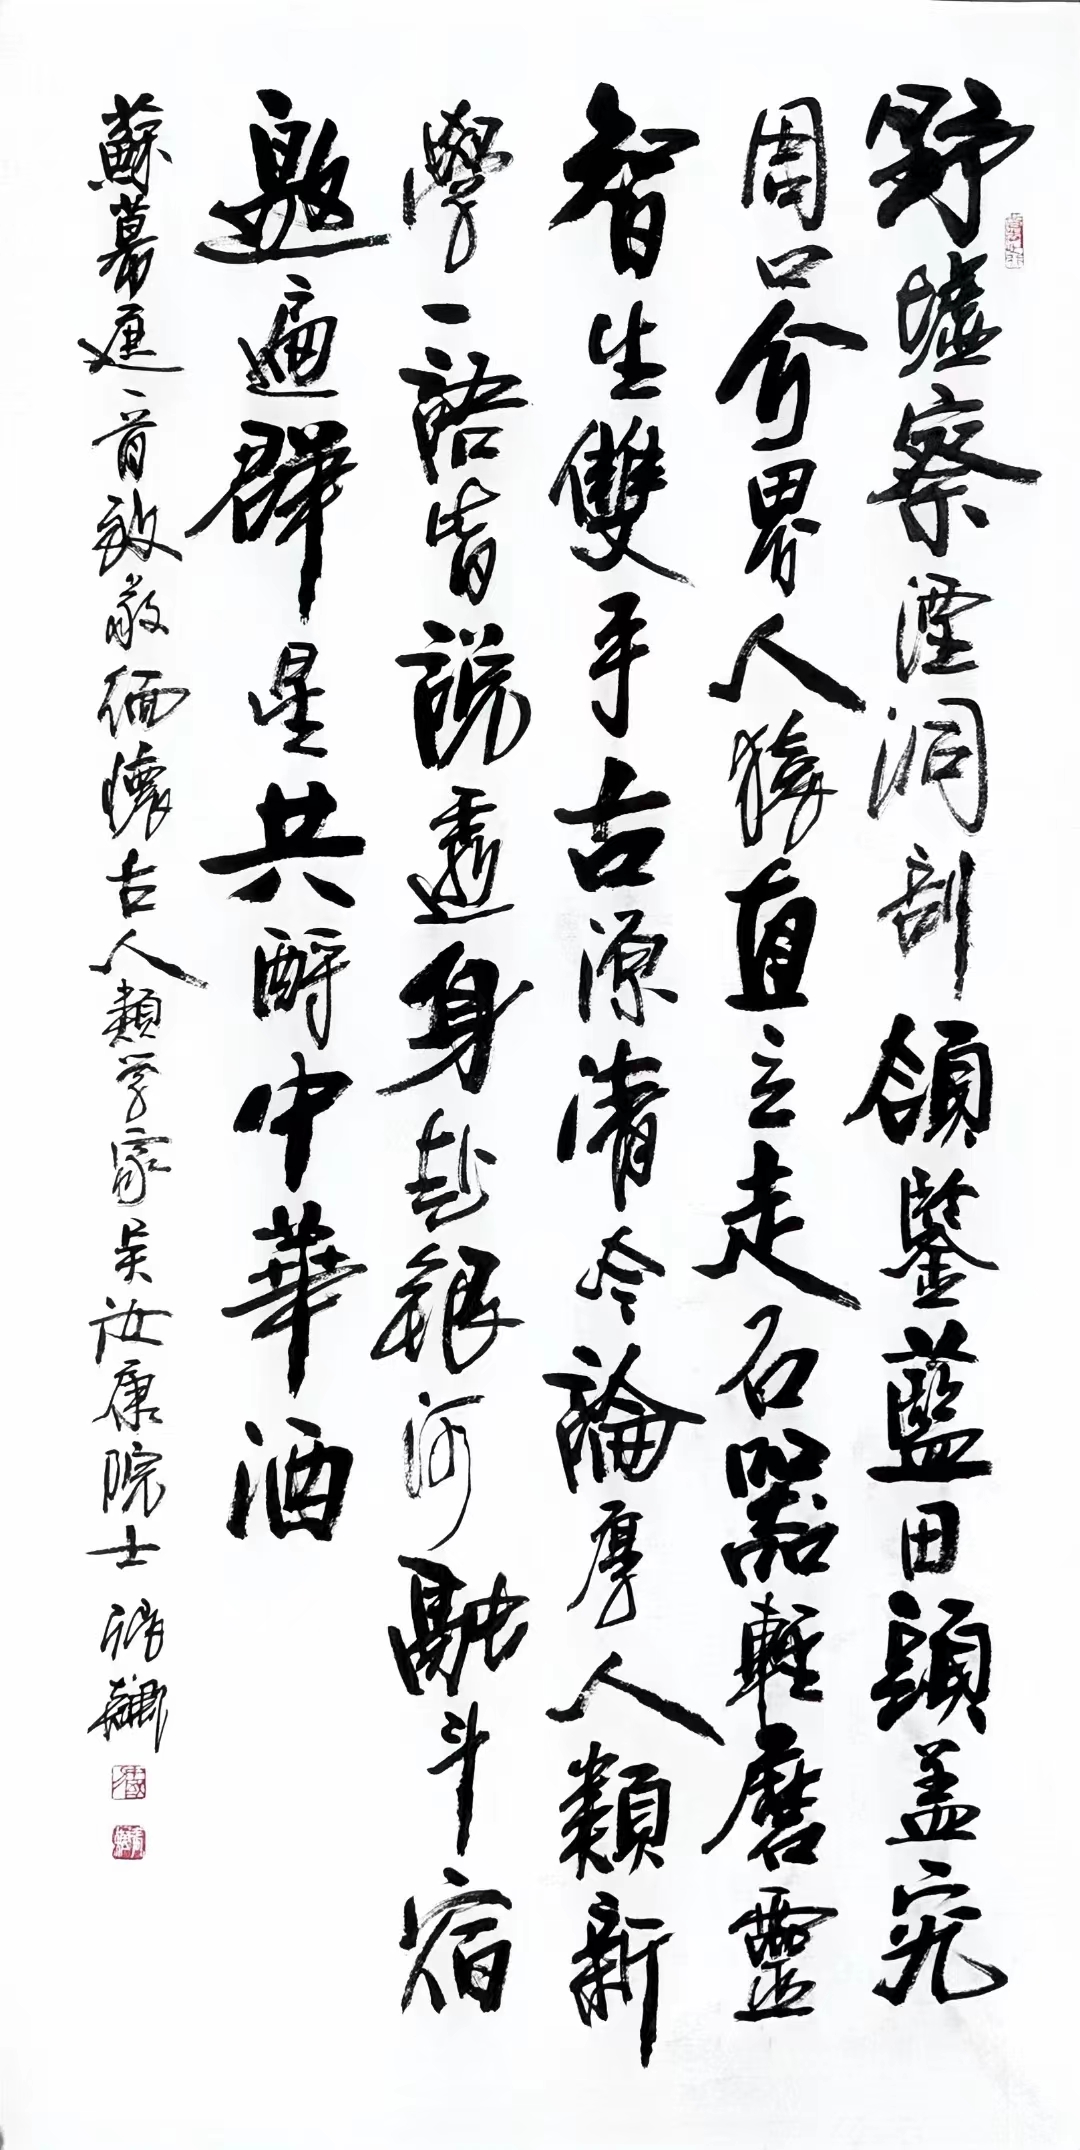 野墟察湮洞剖頜鑒藍田頭盖究
周口介界人猿直立走石器輕磨靈
智生雙手古源清今論厚人類新
學一語皆說透身赴銀河融斗宿
邀遍群星共酹中華酒
蘇幕遮一首致敬緬懷古人類学家吴汝康院士